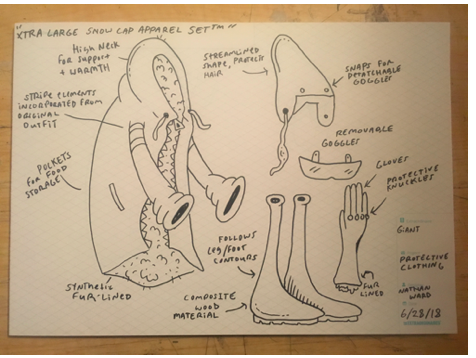 "XTRA LARGE SNOW CAP APPAREL SETTM"
HIGH NECK
FOR SUPPORT
+ WARMTH
STRIPE ELEMENTS
INCORPORATED FROM
ORIGINAL
OUTFIT
POCKETS
FOR FOOD
STORAGE
SYNTHETIC
FUR-LINED
STREAMLINED
SHAPE, PROTECTS
HAIR
SNAPS FOR
DETATCHABLE
GOGGLES
REMOVABLE
GOGGLES
GLOVES
PROTECTIVE
KNUCKLES
FOLLOWS
LEG/FOOT
CONTOURS
COMPOSITE
WOOD
MATERIAL
FUR
LINED
GIANT
PROTECTIVE
CLOTHING
NATHAN
WARD
6/28/18